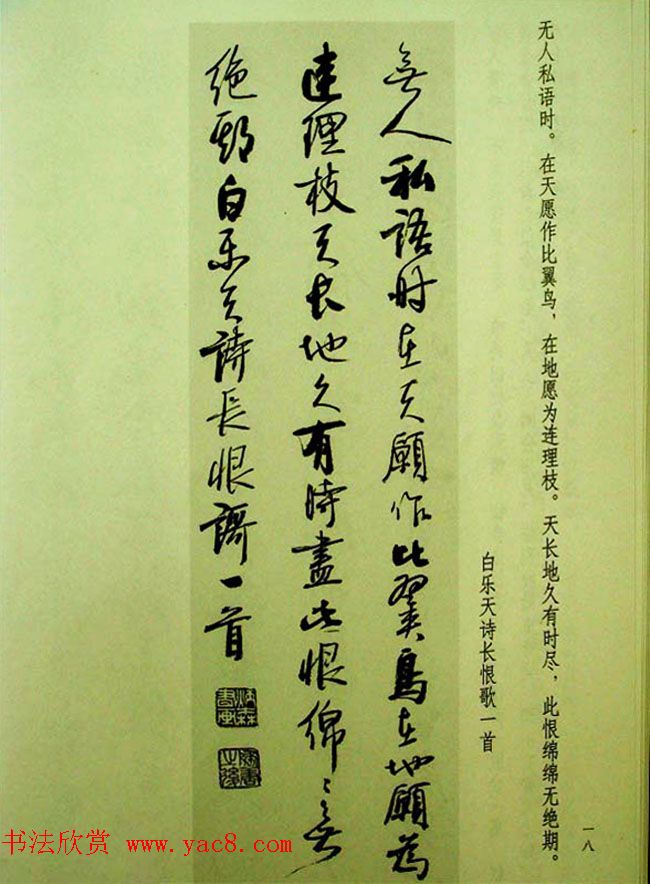 无人私语时。在天愿作比翼鸟，在地愿为连理枝。天长地久有时尽，此恨绵绵无绝期。
白乐天诗长恨歌一首
一八
無人私語时在天願作比翼鳥在地願为
連理枝天长地久有时盡此恨绵〻無
绝期白乐天詩長恨謌一首
书法欣赏 www.yac8.com